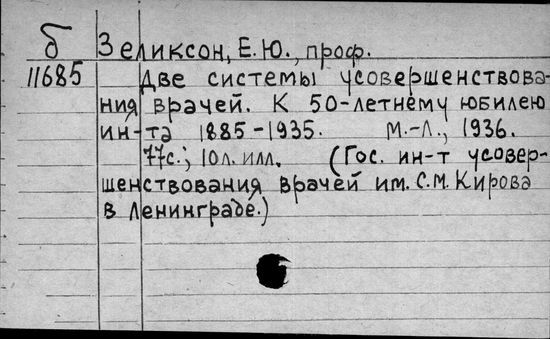 б Зеликсон, Е.Ю., проф.
11685 Две системы усовершенствова-
ния врачей. К 50-летнему юбилею
ин-та 1885-1935. М.-Л., 1936.
77с.; 10л. илл. (Гос. ин-т усовер-
шенствования врачей им. С.М. Кирова
в Ленинграде.)